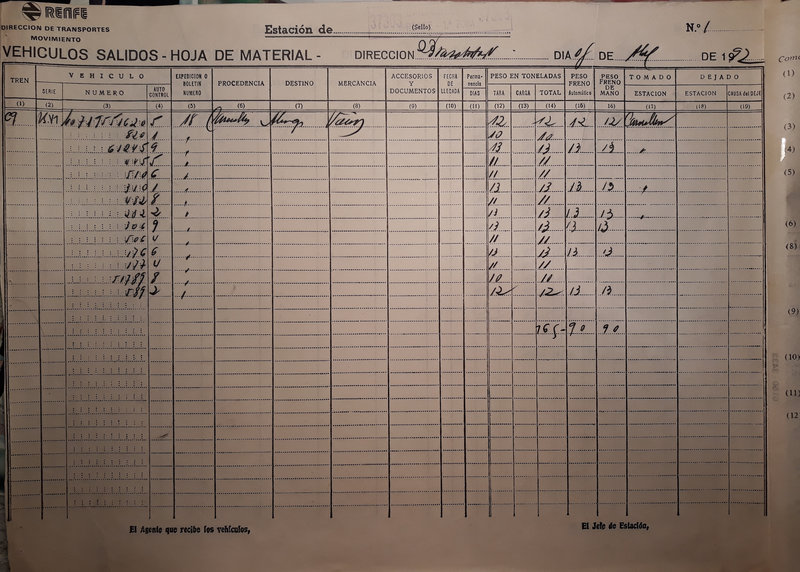 RENFE
DIRECCION DE TRANSPORTES
MOVIMIENTO
Estación de (Sello) N.º 1
VEHICULOS SALIDOS - HOJA DE MATERIAL - DIRECCION DIA DE DE 1982
TREN VEHICULO EXPEDICION O BOLETIN NUMERO PROCEDENCIA DESTINO MERCANCIA ACCESORIOS Y DOCUMENTOS FECHA DE LLEGADA Perma-nencia DIAS PESO EN TONELADAS PESO FRENO Automático PESO FRENO DE MANO TOMADO DEJADO
SERIE NUMERO AUTO CONTROL TARA CARGA TOTAL ESTACION ESTACION CAUSA del DEJE
(1) (2) (3) (4) (5) (6) (7) (8) (9) (10) (11) (12) (13) (14) (15) 16) (17) (18) (19)
5 18 12 12 12 12
820 1 10 10
61245 9 13 13 13 13
445 5 11 11
510 6 11 11
310 1 13 13 13 13
482 8 11 11
2 13 13 13 13
306 9 13 13 13 13
506 4 11 11
176 6 13 13 13 13
177 4 11 11
5 8 10 10
589 2 12 12 13 13
165 - 90 90
El Agente que recibe los vehículos,
El Jefe de Estación,
(1)
(2)
(3)
(4)
(5)
(6)
(8)
(9)
(10)
(11)
(12